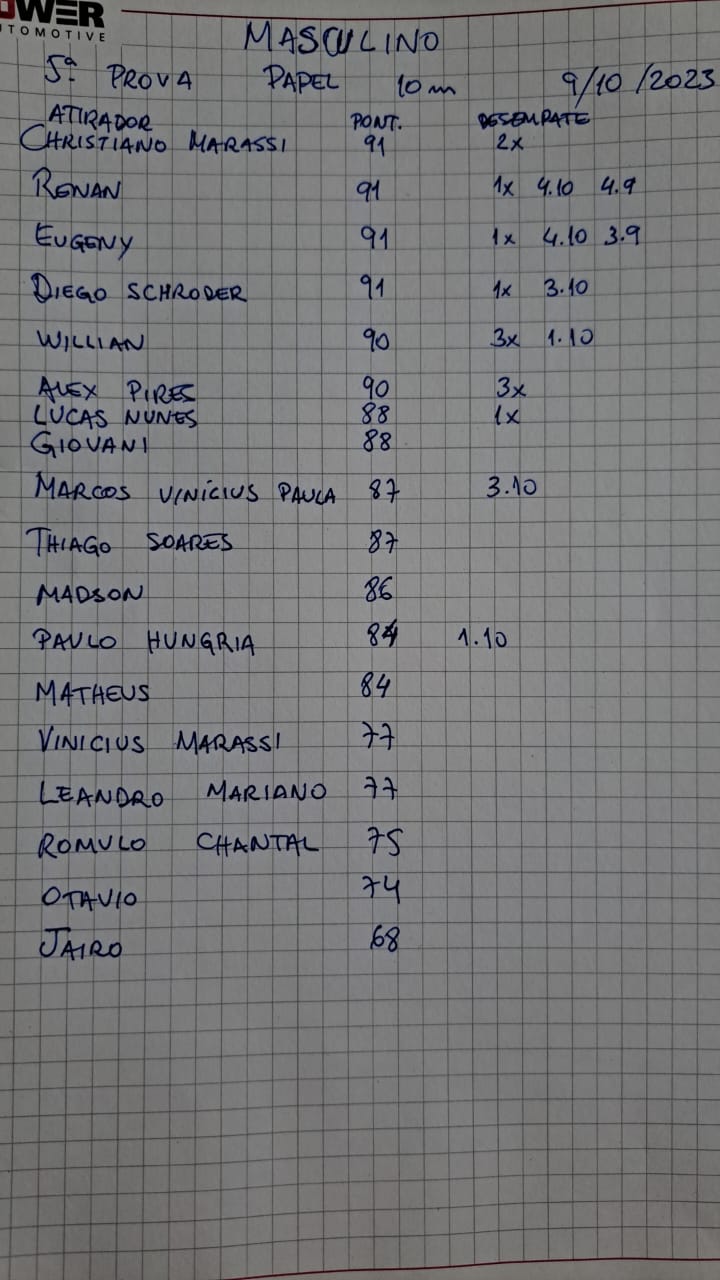 OWER
UTOMOTIVE
MASCULINO
5ª PROVA PAPEL 10m 9/10/2023
ATIRADOR PONT. DESEMPATE
CHRISTIANO MARASSI 91 2x
RENAN 91 1x 4.10 4.9
EUGENY 91 1x 4.10 3.9
DIEGO SCHRODER 91 1x 3.10
WILLIAN 90 3x 1.10
ALEX PIRES 90 3x
LUCAS NUNES 88 1x
GIOVANI 88
MARCOS VINÍCIUS PAULA 87 3.10
THIAGO SOARES 87
MADSON 86
PAULO HUNGRIA 84 1.10
MATHEUS 84
VINICIUS MARASSI 77
LEANDRO MARIANO 77
ROMULO CHANTAL 75
OTAVIO 74
JAIRO 68